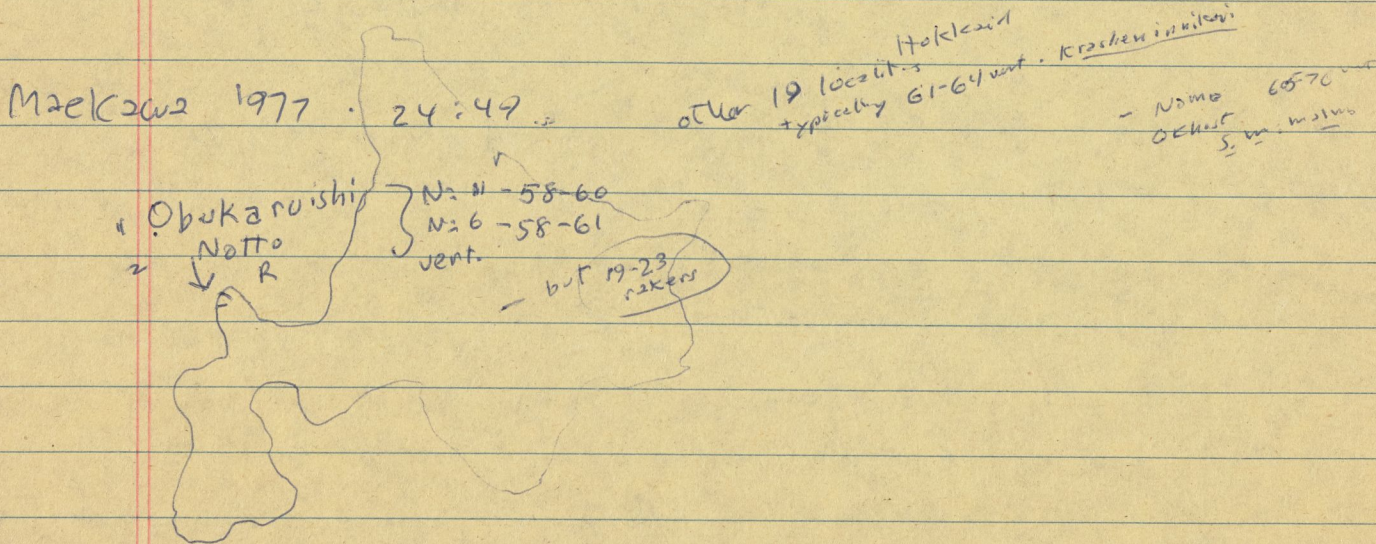 Maekawa 1977 . 24:49
other 19 localities Hokkaid
typically 61-64 vert. Krascheninnikovi
- Nome 65-70
Okhost
S. m. malma
" Obukaruishi } N= 11 - 58-60
Notto N= 6 - 58-61
2 R vent.
- but 19-23
rakers